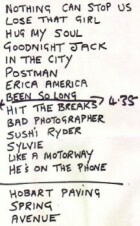 NOTHING CAN STOP US
LOSE THAT GIRL
HUG MY SOUL
GOODNIGHT JACK
IN THE CITY
POSTMAN
ERICA AMERICA
BEEN SO LONG
HIT THE BREAKS 4.35
BAD PHOTOGRAPHER
SUSHI RYDER
SYLVIE
LIKE A MOTORWAY
HE'S ON THE PHONE
HOBART PAVING
SPRING
AVENUE